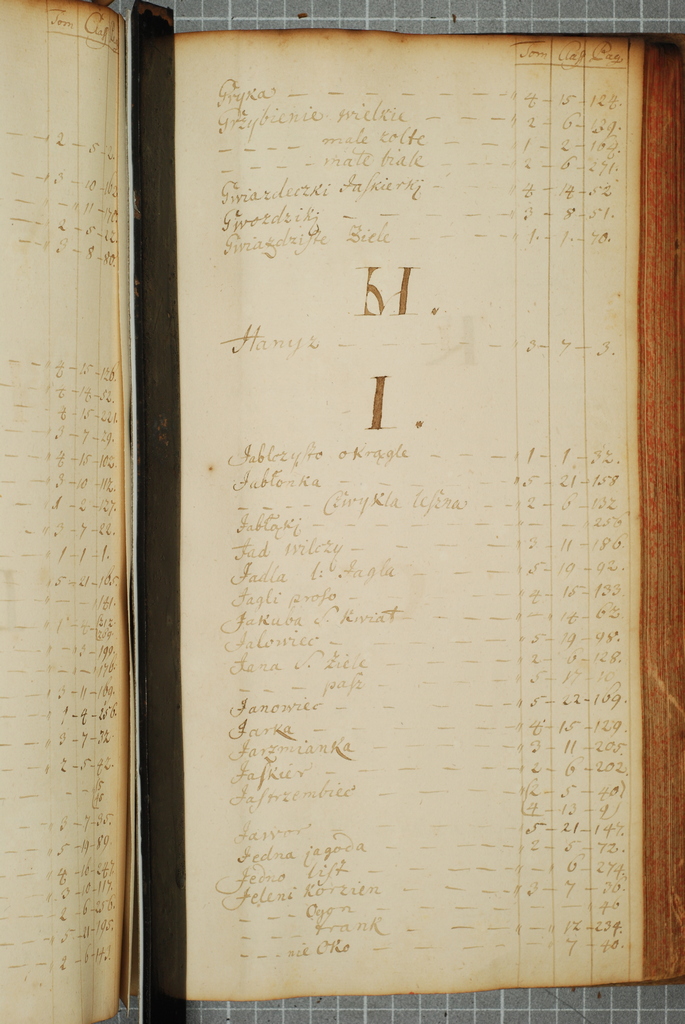 Tom Claſſ
2 - 5 - 2.
3 - 10 - 162
" 11 - 170.
2 - 5 - 22.
3 - 8 - 80.
4 - 15 - 126.
4 - 14 - 52.
4 - 15 - 221.
3 - 7 - 29.
4 - 15 - 102.
3 - 10 - 112.
1 - 2 - 127.
3 - 7 - 22.
1 - 1 - 1.
5 - 21 - 165.
141.
212.
209.
3 - 199.
176.
3 - 11 - 169.
1 - 4 - 256.
3 - 7 - 32.
2 - 5 - 42.
3 - 7 - 35.
5 - 19 - 89.
4 - 16 - 247.
3 - 10 - 117.
2 - 6 - 256.
5 - 11 - 195.
2 - 6 - 143.
Tom Claſſ Pag.
Gryka - - - - " 4 - 15 - 124.
Grzybienie wielkie - - " 2 - 6 - 139.
- - - - małe żołte " 1 - 2 - 109.
- - - - małe białe " 2 - 6 - 271.
Gwiazdeczki Jaſkierkj " 4 - 14 - 52
Gwozdzikj - - - " 3 - 8 - 51.
Gwiazdziſte Ziele - - " 1 - 1 - 70.
H.
Hanyz - - - - " 3 - 7 - 3.
I.
Jablczyſto okrągłe - - " 1 - 1 - 32.
Jabłonka - - - - " 5 - 21 - 158
- - - - Czwykla leſzna - " 2 - 6 - 132
Jabłąkj - - - - " - - 259
Jad wilczy - - - " 3 - 11 - 186.
Jadla l: Jagla - - " 5 - 19 - 92.
Jagli proſo - - - " 4 - 15 - 133.
Jakuba S. kwiat - - " - 14 - 63.
Jalowiec - - - - " 5 - 19 - 98.
Jana S. Ziele - - - " 2 - 6 - 128.
- - - - paſz - - " 5 - 17 - 10.
Janowiec - - - - " 5 - 22 - 169.
Jarka - - - - " 4 - 15 - 129.
Jarzmianka - - - " 3 - 11 - 205.
Jaſkier - - - - " 2 - 6 - 202.
Jaſtrzembiec - - - " (2 - 5 - 40)
(4 - 13 - 9)
Jawor - - - - " 5 - 21 - 147.
Jedna jagoda - - - " 2 - 5 - 72.
Jedno liſt - - - " " 6 - 274.
Jeleni korzien - - " 3 - 7 - 36.
- - - - Ogon - - " - - 46
- - - - trank - - " - 12 - 234.
- - - nie Oko - - " 7 - 40.